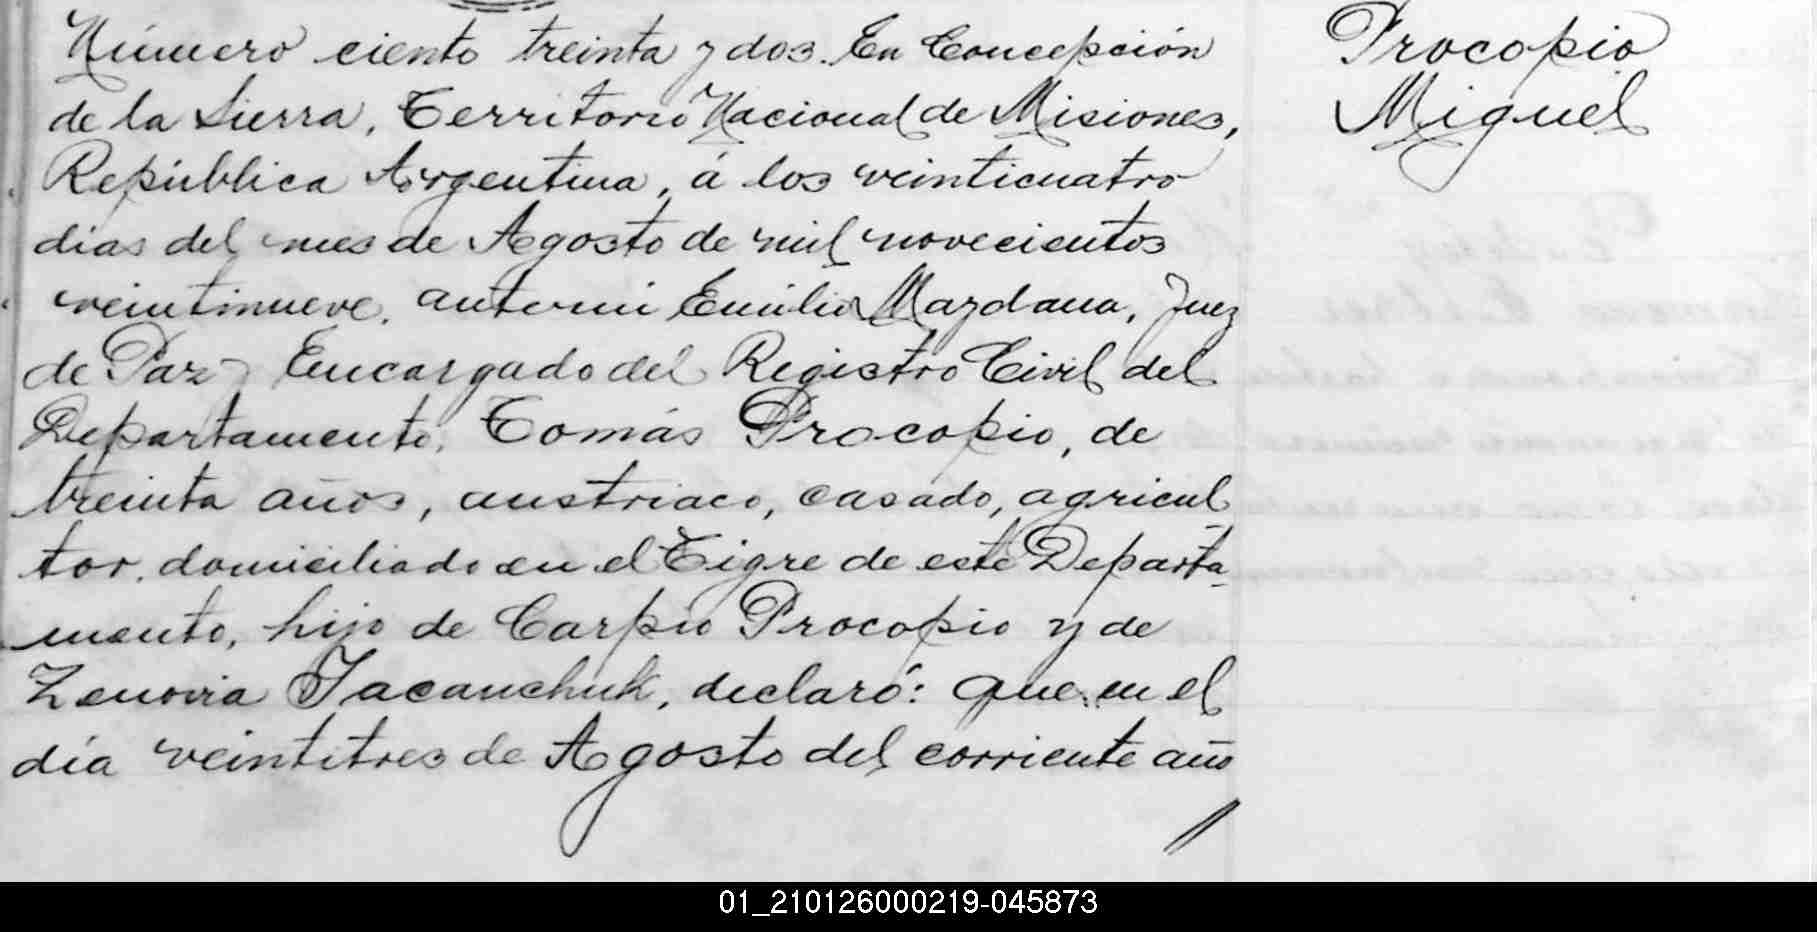 Número ciento treinta y dos. En Concepción
de la Sierra, Territorio Nacional de Misiones,
República Argentina, á los veinticuatro
dias del mes de Agosto de mil novecientos
veintinueve, ante mi Emilio Mazdana, Juez
de Paz y Encargado del Registro Civil del
Departamento, Tomás Procopio, de
treinta años, austriaco, casado, agricul
tor, domiciliado en el Tigre de este Departa-
mento, hijo de Carpio Procopio y de
Zenovia Jacanchuk, declaró: que en el
día veintitres de Agosto del corriente año
Procopio
Miguel
01_210126000219-045873